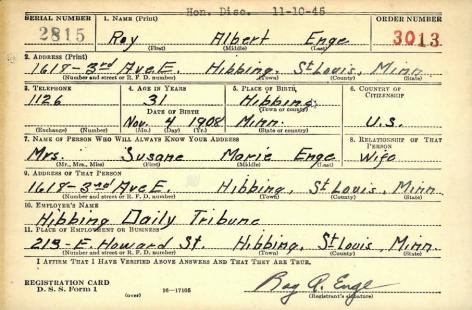 Hon. Disc. 11-10-45
SERIAL NUMBER 1. NAME (Print) ORDER NUMBER
2815 Roy Albert Enge 3013
(First) (Middle) (Last)
2. ADDRESS (Print)
1617-3rd Ave E. Hibbing, St Louis, Minn.
(Number and street or R. F. D. number) (Town) (County) (State)
3. TELEPHONE 4. AGE IN YEARS 5. PLACE OF BIRTH 6. COUNTRY OF CITIZENSHIP
1126 31 Hibbing
(Town or county)
DATE OF BIRTH
Nov. 4 1908 Minn. U.S.
(Exchange) (Number) (Mo.) (Day) (Yr.) (State or country)
7. NAME OF PERSON WHO WILL ALWAYS KNOW YOUR ADDRESS 8. RELATIONSHIP OF THAT PERSON
Mrs. Susane Marie Enge Wife
(Mr., Mrs., Miss) (First) (Middle) (Last)
9. ADDRESS OF THAT PERSON
1617-3rd Ave E. Hibbing, St Louis, Minn
(Number and street or R. F. D. number) (Town) (County) (State)
10. EMPLOYER'S NAME
Hibbing Daily Tribune
11. PLACE OF EMPLOYMENT OR BUSINESS
213-E. Howard St. Hibbing, St Louis, Minn.
(Number and street or R. F. D. number) (Town) (County) (State)
I AFFIRM THAT I HAVE VERIFIED ABOVE ANSWERS AND THAT THEY ARE TRUE.
REGISTRATION CARD
D. S. S. Form 1 (over) 16-17105 Roy A. Enge
(Registrant's signature)